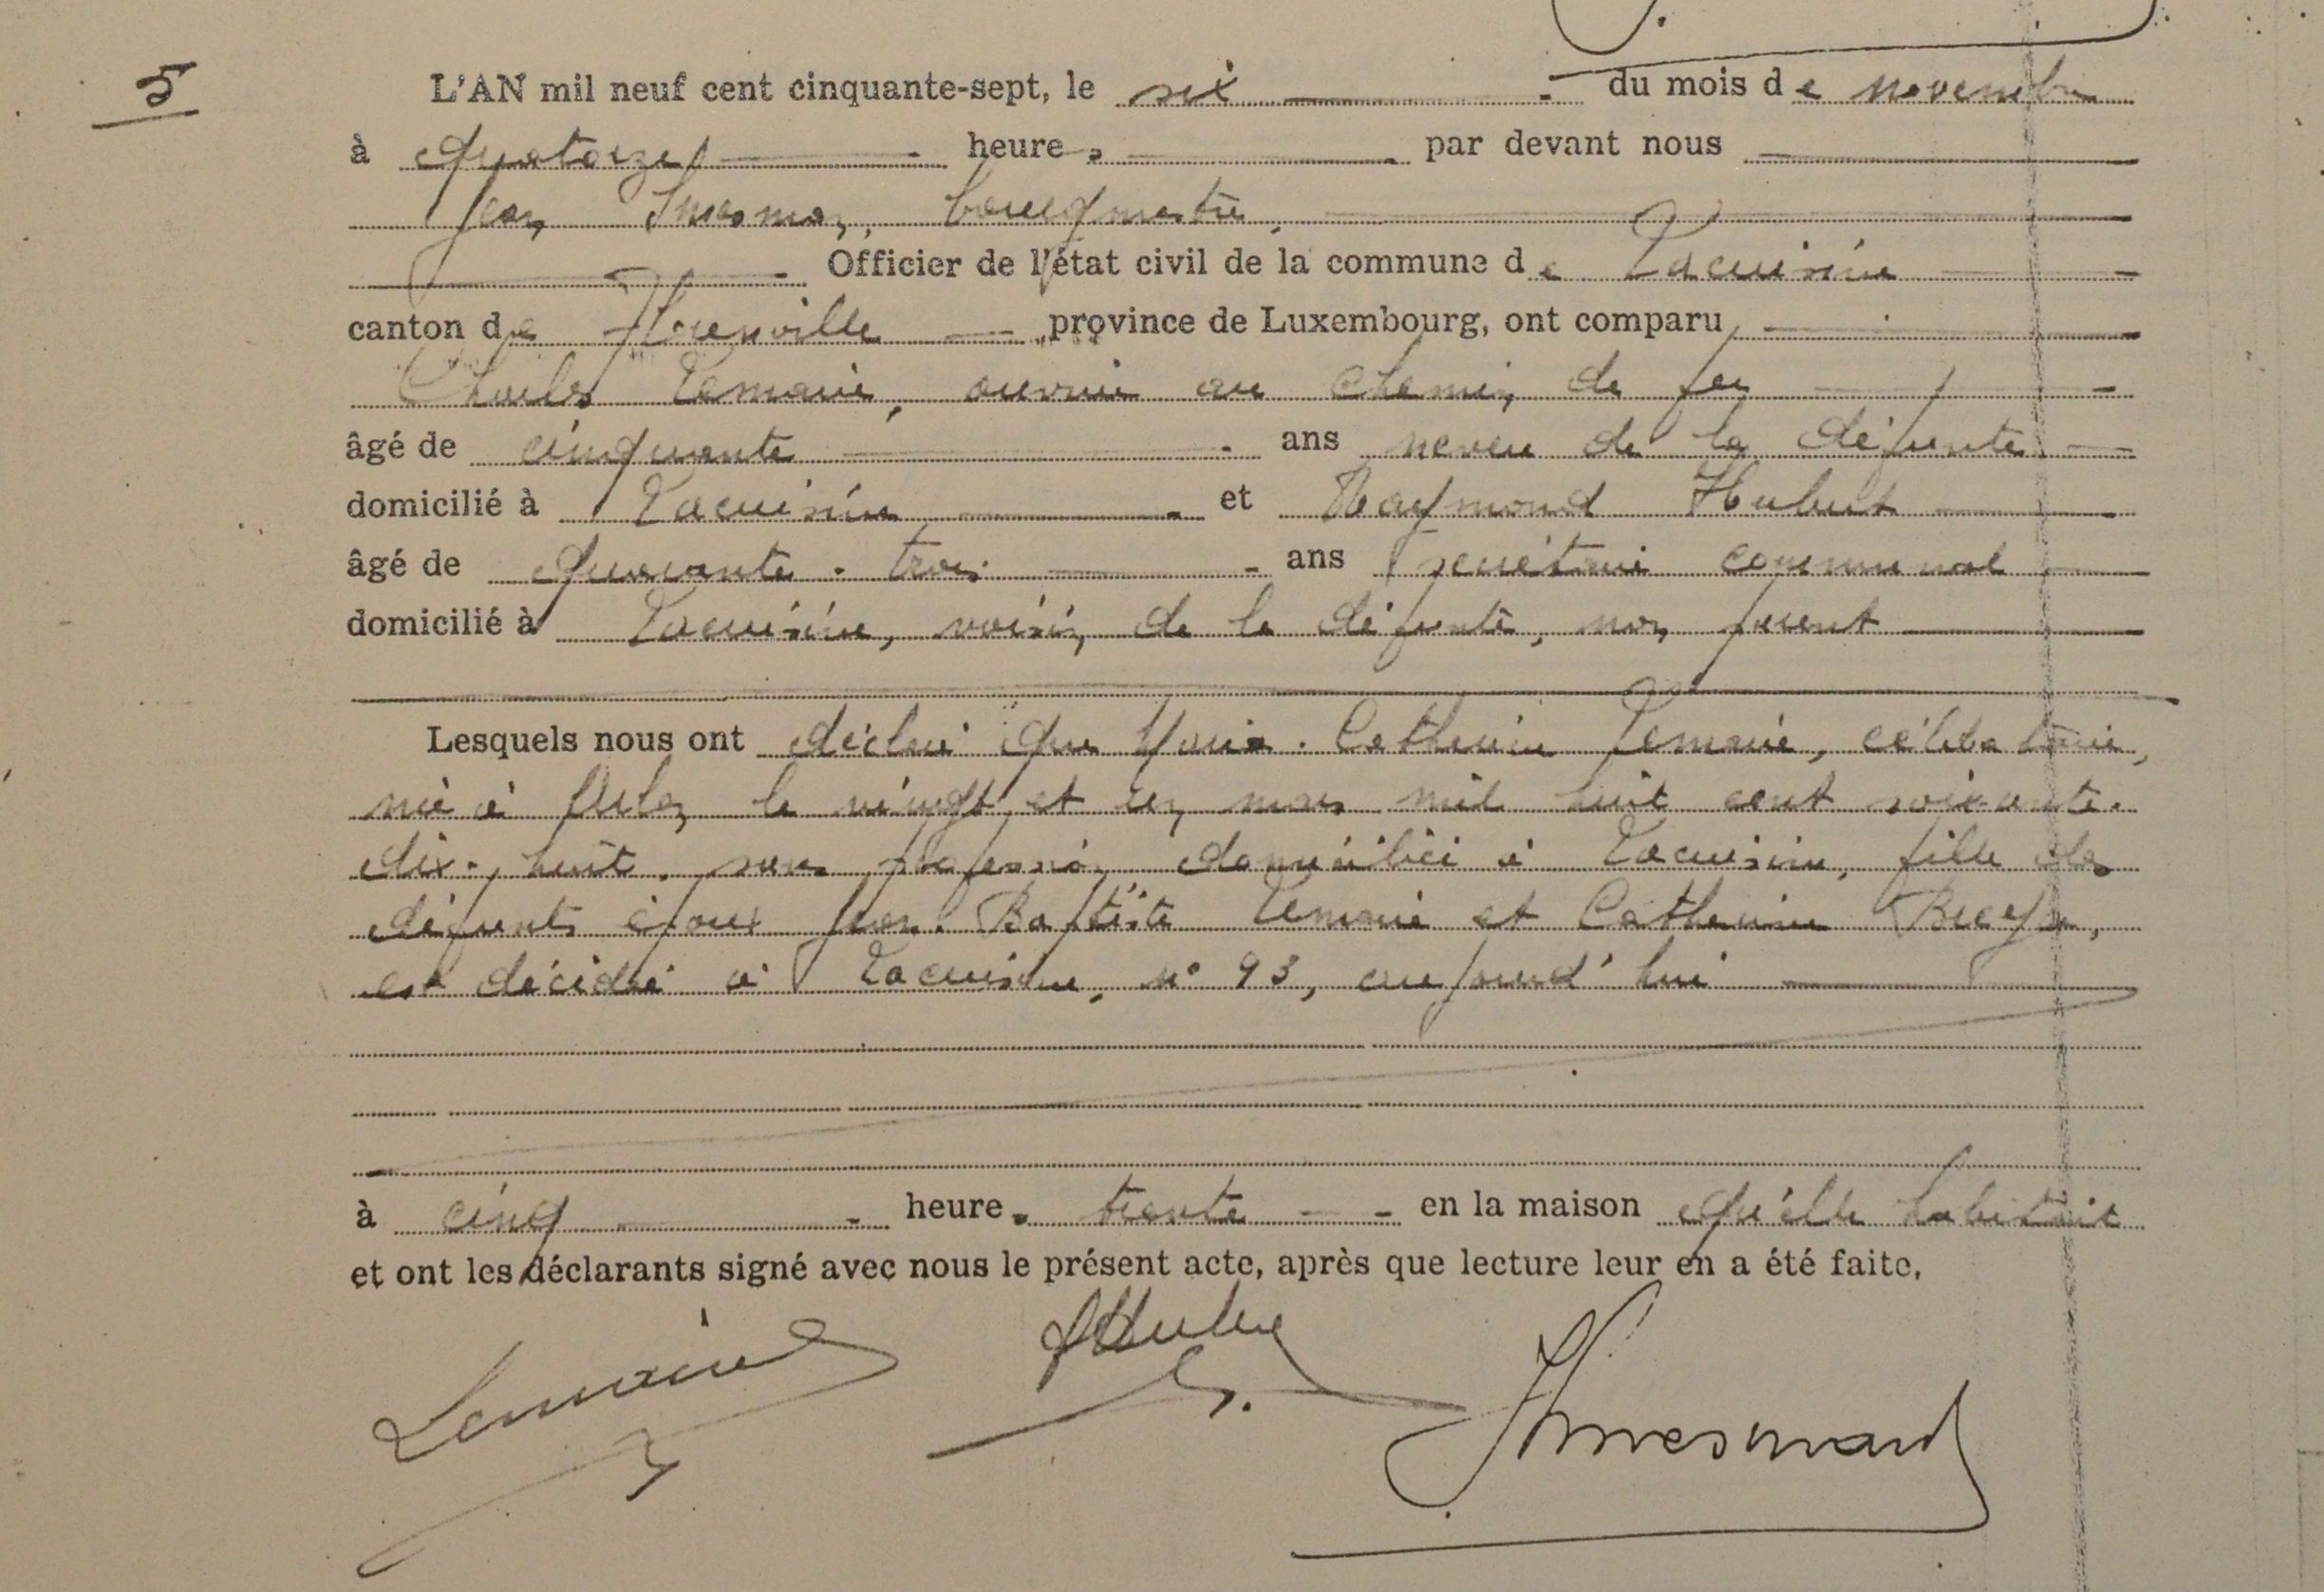 5
L'AN mil neuf cent cinquante-sept, le six du mois de novembre
à quatorze heures par devant nous
Jean bourgmestre,
Officier de l'état civil de la commune de Lacuisine
canton de Florenville province de Luxembourg, ont comparu
Charles Lemaire, ouvrier au chemin de fer
âgé de cinquante ans neveu de la défunte
domicilié à Lacuisine et Raymond Hubert
âgé de quarante-trois ans secrétaire communal
domicilié à Lacuisine, voisin de la défunte, non parent
Lesquels nous ont déclaré que Marie-Catherine Lemaire, célibataire,
née à le vingt et un mars mil huit cent soixante-
dix-huit, sans profession domiciliée à Lacuisine, fille des
défunts époux Jean-Baptiste Lemaire et Catherine
est décédée à Lacuisine, n° 93, aujourd'hui
à cinq heures trente en la maison qu'elle habitait
et ont les déclarants signé avec nous le présent acte, après que lecture leur en a été faite.
Lemaire